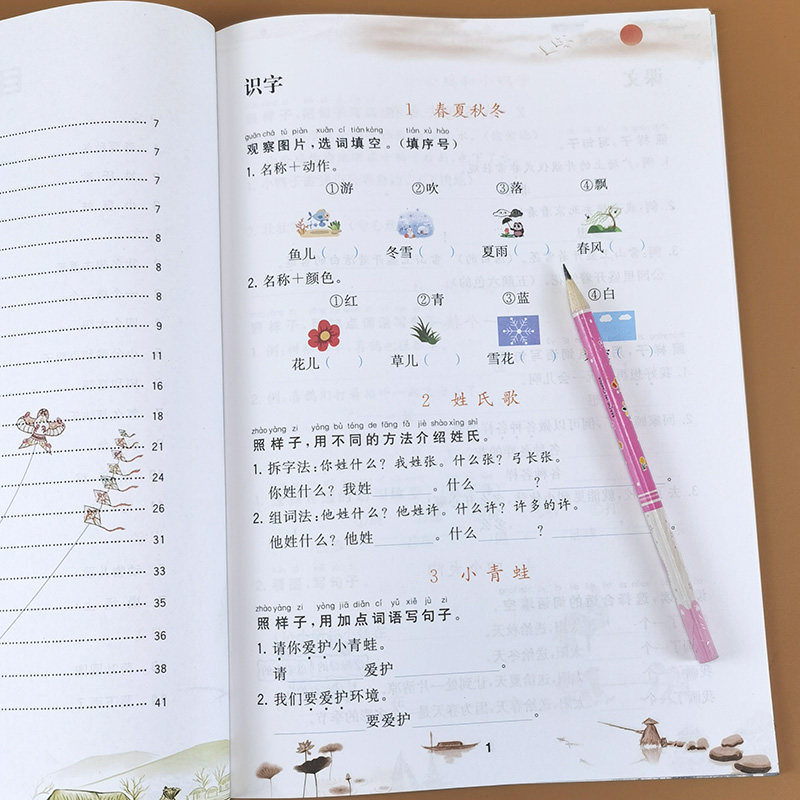 7
7
7
7
8
8
8
9
11
16
18
21
24
26
31
33
35
36
38
41
识字
1 春夏秋冬
guān chá tú piàn xuǎn cí tián kòng tián xù hào
观察图片，选词填空。（填序号）
1. 名称＋动作。
①游 ②吹 ③落 ④飘
鱼儿（ ） 冬雪（ ） 夏雨（ ） 春风（ ）
2. 名称＋颜色。
①红 ②青 ③蓝 ④白
花儿（ ） 草儿（ ） 雪花（ ） （ ）
2 姓氏歌
zhào yàng zi yòng bù tóng de fāng fǎ jiè shào xìng shì
照样子，用不同的方法介绍姓氏。
1. 拆字法：你姓什么？我姓张。什么张？弓长张。
你姓什么？我姓______。什么______？______。
2. 组词法：他姓什么？他姓许。什么许？许多的许。
他姓什么？他姓______。什么______？______。
3 小青蛙
zhào yàng zi yòng jiā diǎn cí yǔ xiě jù zi
照样子，用加点词语写句子。
1. 请你爱护小青蛙。
请______爱护______。
2. 我们要爱护环境。
______要爱护______。
1